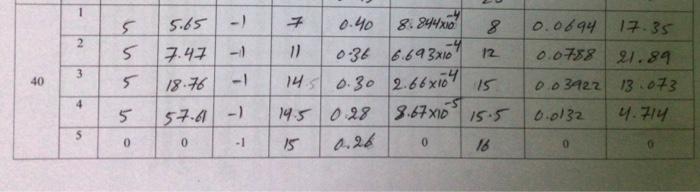 1 5 5.65 -1 7 0.40 8.844x10⁻⁴ 8 0.0694 17.35
2 5 7.47 -1 11 0.36 6.693x10⁻⁴ 12 0.0788 21.89
40 3 5 18.76 -1 14.5 0.30 2.66x10⁻⁴ 15 0.03922 13.073
4 5 57.61 -1 19.5 0.28 8.67x10⁻⁵ 15.5 0.0132 4.714
5 0 0 -1 15 0.26 0 16 0 0